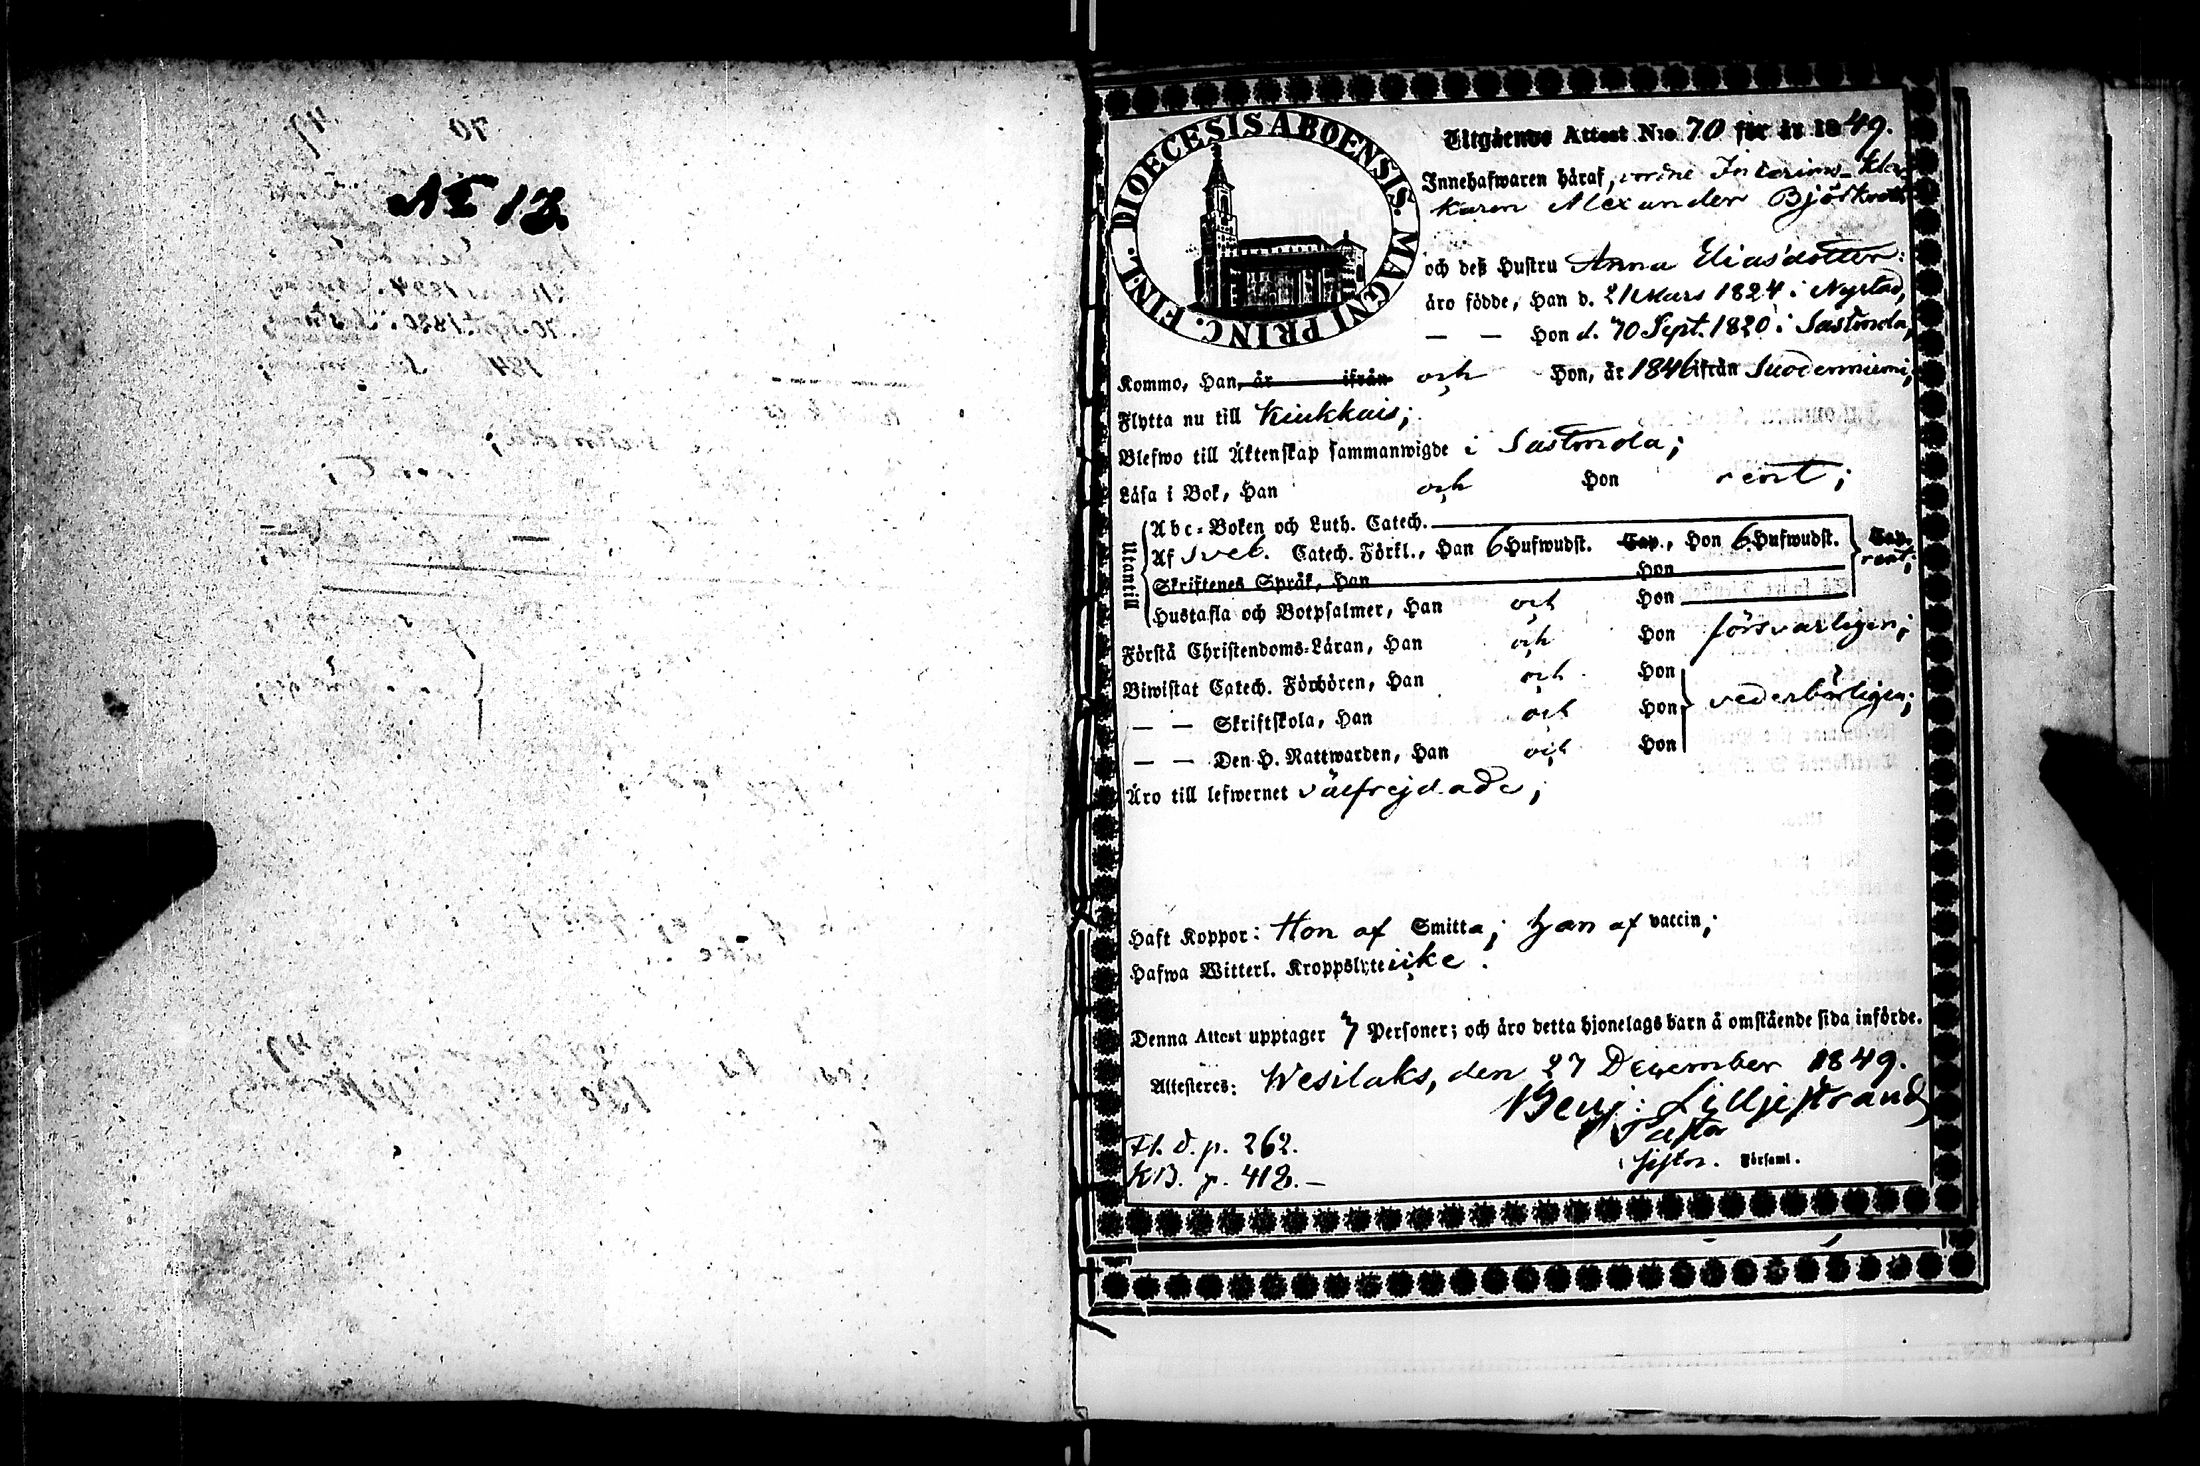 No 13.
DIOECESIS ABOENSIS. MAGNI PRINC. FINL.
Utgående Attest N:o 70 för år 1849.
Innehafwaren häraf, vordne Interims-Kloc-
karen Alexander Björkroth
och deß Hustru Anna Eliasdotter:
äro födde, Han d. 21 Mars 1824 i Nystad,
— — Hon d. 70 Sept. 1820 i Sastmola,
Kommo, Han, år ifrån och Hon, år 1846 ifrån Suodenniemi,
Flytta nu till Kiukkais;
Blefwo till Äktenskap sammanwigde i Sastmola;
Läsa i Bok, Han och Hon rent;
Utantill
Abc-Boken och Luth. Catech.
Af Sveb. Catech. Förkl., Han 6 Hufwudst. Cap., Hon 6 Hufwudst. Cap.
rent;
Skriftenes Språk, Han Hon
Hustafla och Botpsalmer, Han och Hon
Förstå Christendoms-Läran, Han och Hon försvarligen;
Biwistat Catech. Förhören, Han och Hon
— — Skriftskola, Han och Hon vederbörligen;
— — Den H. Nattwarden, Han och Hon
Äro till lefwernet välfrejdade;
Haft Koppor: Hon af Smitta; Han af vaccin;
Hafwa Witterl. Kroppslyte icke.
Denna Attest upptager 7 Personer; och äro detta hjonelags barn å omstående sida införde.
Attesteres: Wesilaks, den 27 December 1849.
Benj: Lilljestrand
Pastor
Församl.
Fl. d. p. 262.
KB. p. 412.—